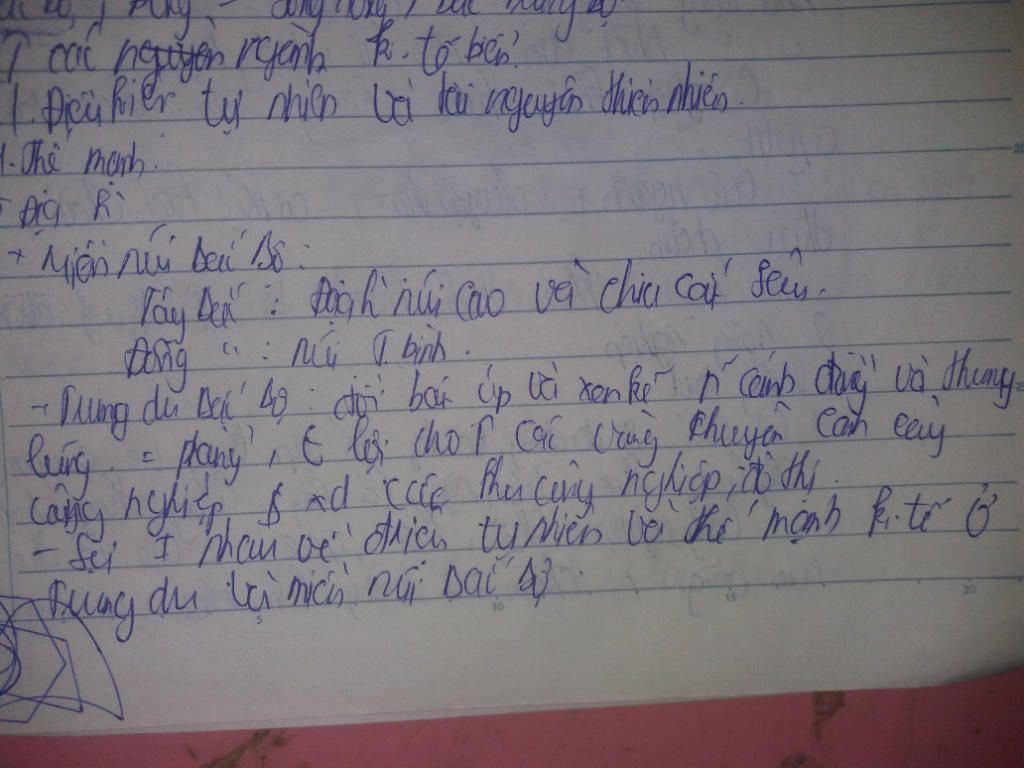 các ngành k.tế biển.
Điều kiện tự nhiên và tài nguyên thiên nhiên.
1. Thế mạnh.
- Địa h
+ Miền núi Bắc Bộ:
Tây Bắc : Địa h núi cao và chia cắt sâu.
Đông " : núi T bình.
- Trung du Bắc Bộ : đồi bát úp và xen kẽ n cánh đồng và thung
lũng = phẳng, lợi cho các vùng chuyên canh cây
công nghiệp & xd các khu công nghiệp, đô thị.
- Sự nhau về thiên tự nhiên và thế mạnh k.tế ở
Trung du và miền núi Bắc Bộ.
5 10 15 20